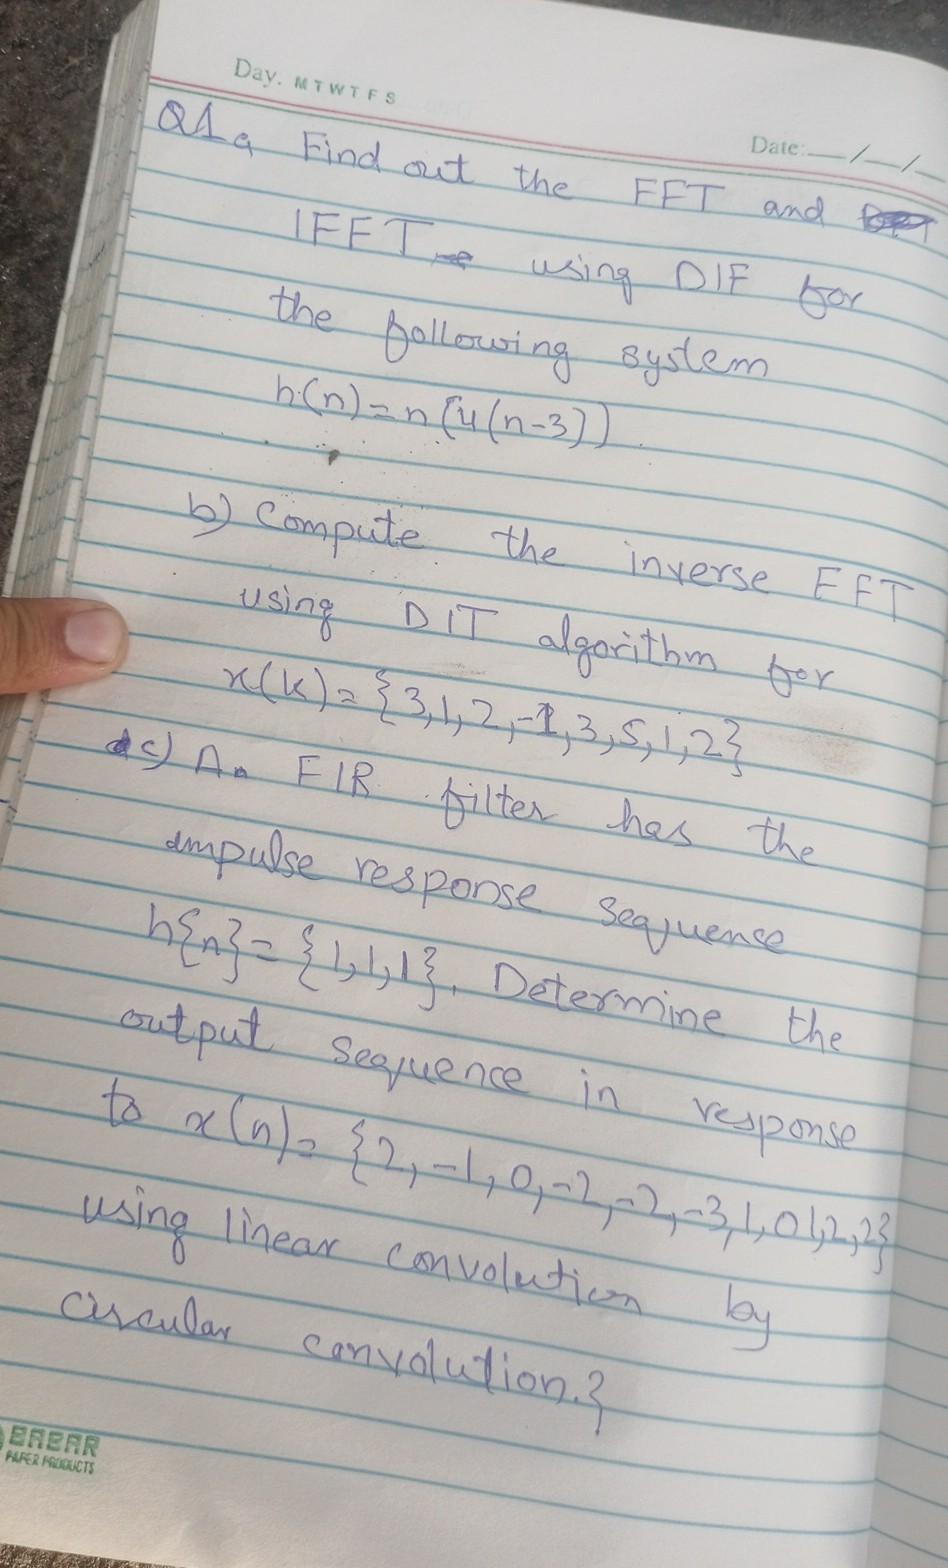 Day. M T W T F S
Date: __/__/__
Q1 a, Find out the FFT and
IFFT using DIF for
the following system
h(n)=n(u(n-3))
b) Compute the inverse FFT
using DIT algorithm for
x(k)={3,1,2,-1,3,5,1,2}
c) A FIR filter has the
impulse response sequence
h{n}={1,1,1}. Determine the
output sequence in response
to x(n)={2,-1,0,-2,-2,-3,1,0 1,2,2}
using linear convolution by
circular convolution.}
BABAR
PAPER PRODUCTS